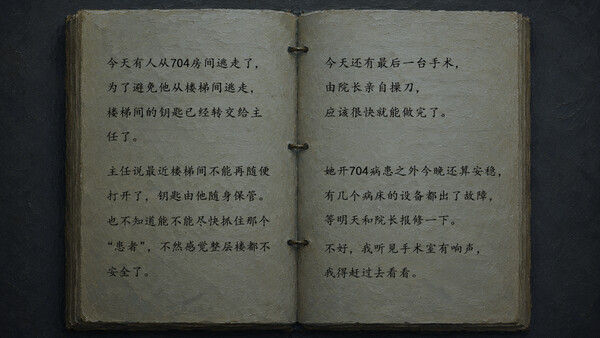 今天有人从704房间逃走了，
为了避免他从楼梯间逃走，
楼梯间的钥匙已经转交给主
任了。
主任说最近楼梯间不能再随便
打开了，钥匙由他随身保管。
也不知道能不能尽快抓住那个
“患者”，不然感觉整层楼都不
安全了。
今天还有最后一台手术，
由院长亲自操刀，
应该很快就能做完了。
她开704病患之外今晚还算安稳，
有几个病床的设备都出了故障，
等明天和院长报修一下。
不好，我听见手术室有响声，
我得赶过去看看。